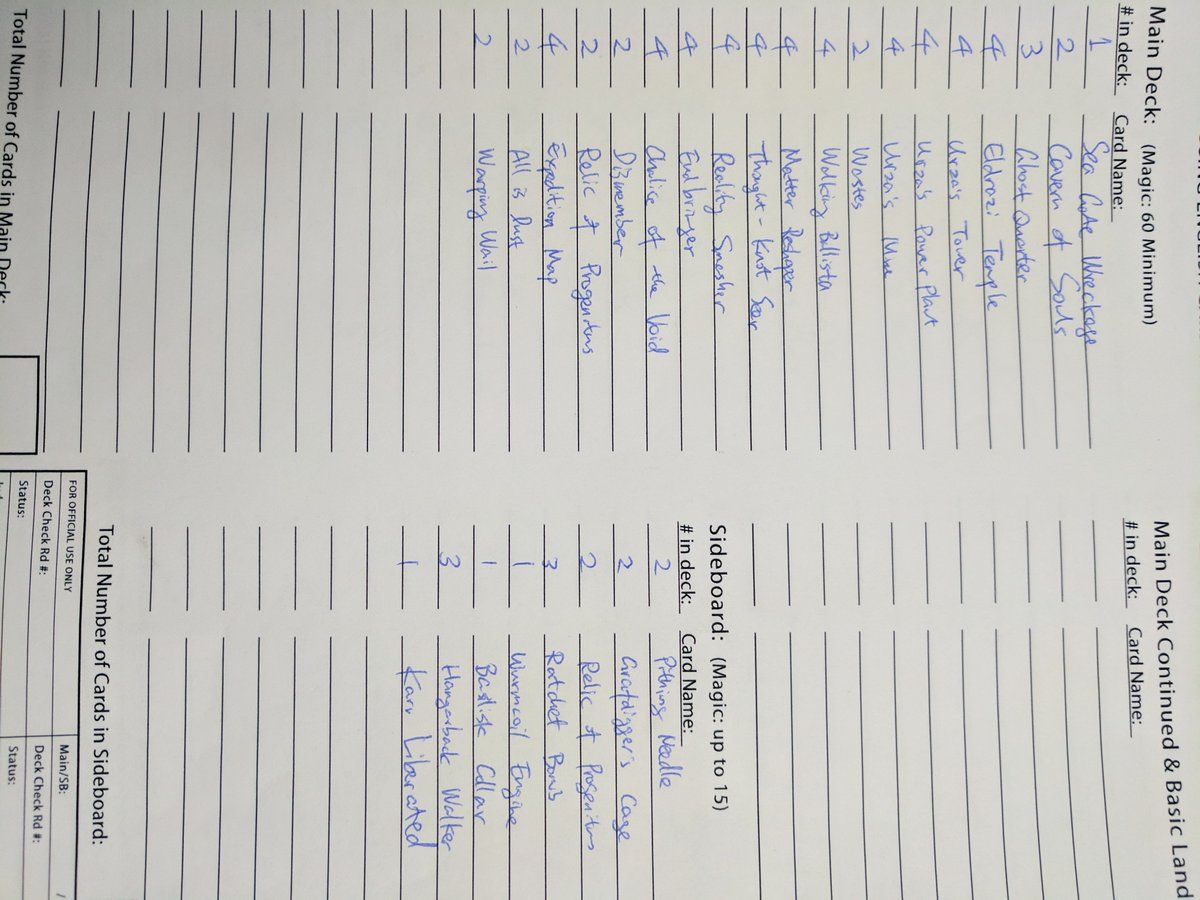 Main Deck: (Magic: 60 Minimum)
# in deck: Card Name:
1 Sea Gate Wreckage
2 Cavern of Souls
3 Ghost Quarter
4 Eldrazi Temple
4 Urza's Tower
4 Urza's Power Plant
4 Urza's Mine
2 Wastes
4 Walking Ballista
4 Matter Reshaper
4 Thought-Knot Seer
4 Reality Smasher
4 Endbringer
4 Chalice of the Void
2 Dismember
2 Relic of Progenitus
4 Expedition Map
2 All is Dust
2 Warping Wail
Total Number of Cards in Main Deck:
Main Deck Continued & Basic Land
# in deck: Card Name:
Sideboard: (Magic: up to 15)
# in deck: Card Name:
2 Pithing Needle
2 Grafdigger's Cage
2 Relic of Progenitus
3 Ratchet Bomb
1 Wurmcoil Engine
1 Basilisk Collar
3 Hangarback Walker
1 Karn Liberated
Total Number of Cards in Sideboard:
FOR OFFICIAL USE ONLY
Main/SB: /
Deck Check Rd #:
Deck Check Rd #:
Status:
Status: